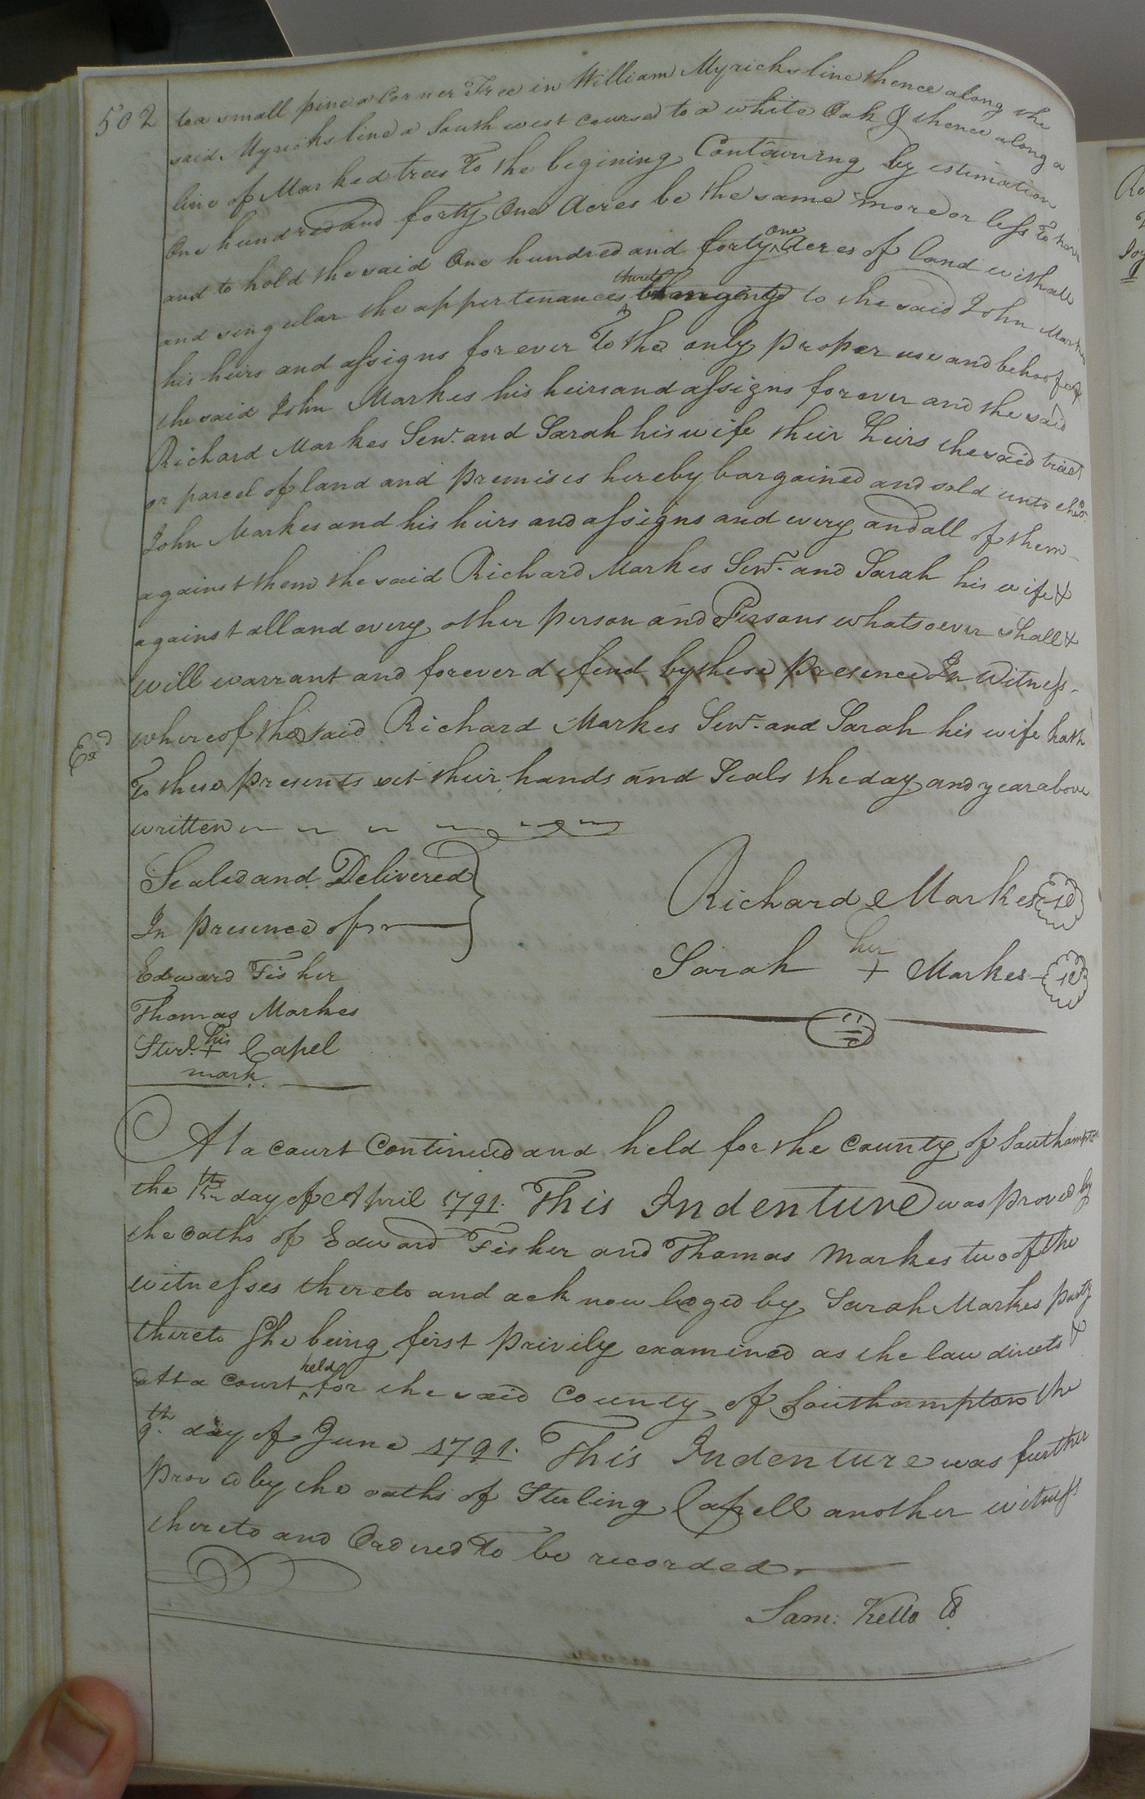 502
to a small pine a Corner Tree in William Myricks line thence along the
said Myricks line a South west coursed to a white Oak & thence along a
line of Marked trees To the begining Containing by estimation
One hundred and forty One Acres be the same more or less To have
and to hold the said One hundred and forty one Acres of land with all
and singular the appertenances thereto belonging to the said John Markes
his heirs and assigns for ever To the only proper use and behoof of
the said John Markes his heirs and assigns forever and the said
Richard Markes Senr. and Sarah his wife their heirs the said tract
or parcel of land and premises hereby bargained and sold unto the sd.
John Markes and his heirs and assigns and every and all of them
against them the said Richard Markes Senr. and Sarah his wife &
against all and every other person and Persons whatsoever shall &
will warrant and forever defend by these presence In Witness
Exd
whereof the said Richard Markes Senr. and Sarah his wife hath
To these presents set their hands and Seals the day and year above
written
Sealed and Delivered
In presence of
Richard Markes
Edward Fisher
Sarah her + Markes
Thomas Markes
Sterl. his + Capel
mark
At a court Continued and held for the County of Southampton
the day of April 1791. This Indenture was proved by
the oaths of Edward Fisher and Thomas Markes two of the
witnesses thereto and acknowledged by Sarah Markes party
thereto She being first privily examined as the law directs &
att a Court held for the said County of Southampton the
9th. day of June 1791. This Indenture was further
proved by the oaths of Sterling Capell another witness
thereto and Ordered To be recorded
Sam: Kello